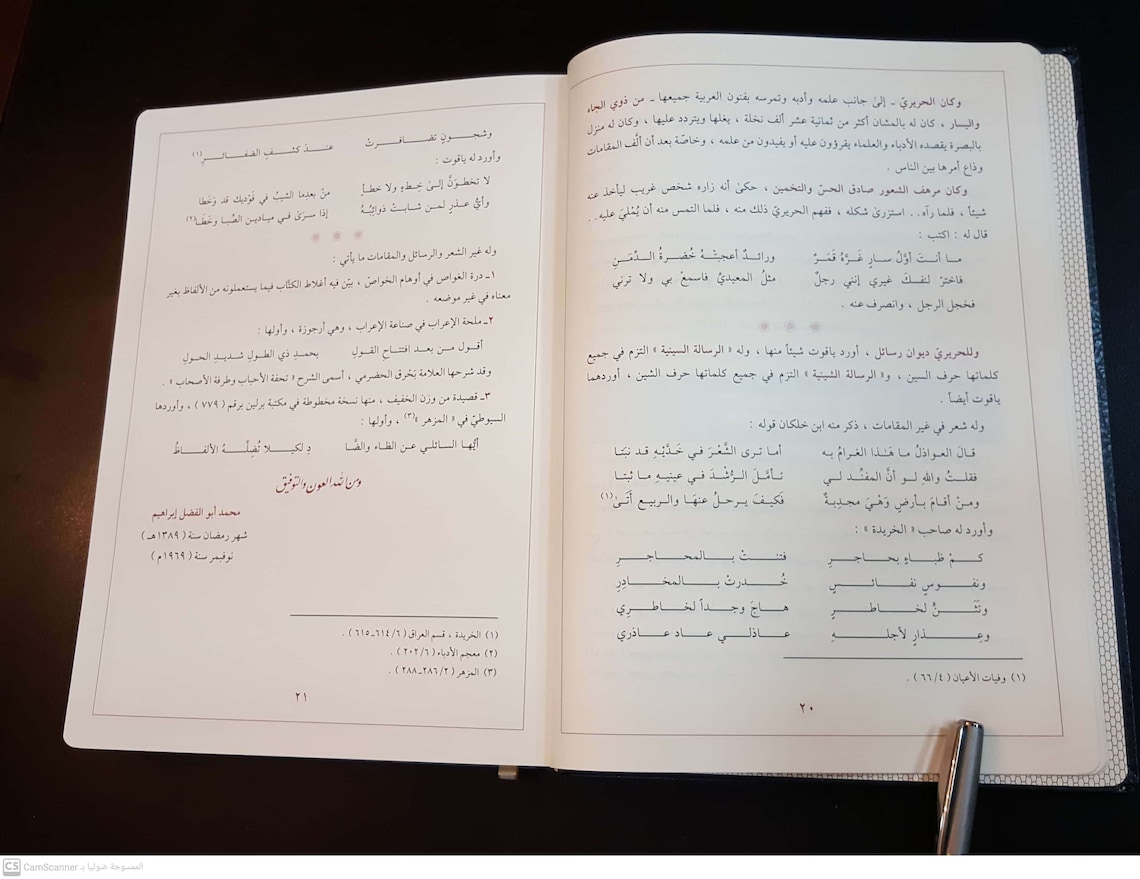 وكان الحريريّ ـ إلىٰ جانب علمه وأدبه وتمرسه بفنون العربية جميعها ـ من ذوي الجاه
واليسار ، كان له بالمشان أكثر من ثمانية عشر ألف نخلة ، يغلها ويتردد عليها ، وكان له منزل
بالبصرة يقصده الأدباء والعلماء يقرؤون عليه أو يفيدون من علمه ، وخاصّة بعد أن ألَّف المقامات
وذاع أمرها بين الناس .
وكان مرهف الشعور صادق الحسّ والتخمين ، حكىٰ أنه زاره شخص غريب ليأخذ عنه
شيئاً ، فلما رآه . . استزرىٰ شكله ، ففهم الحريريّ ذلك منه ، فلما التمس منه أن يُمْليَ عليه . .
قال له : اكتب :
ما أنتَ أوَّلُ سارٍ غَرَّهُ قَمَرٌ ورائدٌ أعجبتْهُ خُضرةُ الدِّمَنِ
فاخترْ لنفسكَ غيري إنني رجلٌ مثلُ المعيديِّ فاسمعْ بي ولا ترني
فخجل الرجل ، وانصرف عنه .
وللحريريّ ديوان رسائل ، أورد ياقوت شيئاً منها ، وله « الرسالة السينية » التزم في جميع
كلماتها حرف السين ، و« الرسالة الشينية » التزم في جميع كلماتها حرف الشين ، أوردهما
ياقوت أيضاً .
وله شعر في غير المقامات ، ذكر منه ابن خلكان قوله :
قالَ العواذلُ ما هَٰذا الغرامُ به أما ترىٰ الشَّعْرَ في خَدَّيْهِ قد نبَتَا
فقلتُ واللهِ لو أنَّ المفنِّد لي تأمَّلَ الرُّشْدَ في عينيهِ ما ثبَتا
ومنْ أقامَ بأرضٍ وَهْيَ مجدِبةٌ فكيفَ يرحلُ عنهَا والربيع أَتَىٰ(١)
وأورد له صاحب « الخريدة » :
كمْ ظباءٍ بحاجرِ فتنتْ بالمحاجرِ
ونفوسٍ نفائسٍ خُدرتْ بالمخادِرِ
وتَثَنٍّ لخاطرٍ هاجَ وجداً لخاطرِي
وعِذارٍ لأجلهِ عاذلي عاد عاذري
(١) وفيات الأعيان ( ٤/ ٦٦ ) .
٢٠
وشجونٍ تضافرتْ عندَ كشفِ الضفائرِ(١)
وأورد له ياقوت :
لا تخطوَنَّ إلىٰ خِطءٍ ولا خطأٍ منْ بعدِما الشيبُ في فَوْدَيك قد وَخَطا
وأيُّ عذرٍ لمن شابتْ ذوائِبُهُ إذا سرَىٰ في ميادينِ الصِّبا وخَطَا(٢)
وله غير الشعر والرسائل والمقامات ما يأتي :
١ـ درة الغواص في أوهام الخواصّ ، بيّن فيه أغلاط الكتَّاب فيما يستعملونه من الألفاظ بغير
معناه في غير موضعه .
٢ـ ملحة الإعراب في صناعة الإعراب ، وهي أرجوزة ، وأولها :
أقول من بعد افتتاح القولِ بحمدِ ذي الطولِ شديدِ الحولِ
وقد شرحها العلامة بَحْرق الحضرمي ، أسمى الشرح « تحفة الأحباب وطرفة الأصحاب » .
٣ـ قصيدة من وزن الخفيف ، منها نسخة مخطوطة في مكتبة برلين برقم ( ٧٧٩ ) ، وأوردها
السيوطيّ في « المزهر »(٣) ، وأولها :
أيُّها السائلي عن الظاء والضَّا دِ لكيلا تُضِلَّهُ الألفاظُ
ومن الله العون والتوفيق
محمد أبو الفضل إبراهيم
شهر رمضان سنة ( ١٣٨٩هـ )
نوفمبر سنة ( ١٩٦٩م )
(١) الخريدة ، قسم العراق ( ٦/ ٦١٤ـ٦١٥ ) .
(٢) معجم الأدباء ( ٦/ ٢٠٢ ) .
(٣) المزهر ( ٢/ ٢٨٦ـ٢٨٨ ) .
٢١
CS CamScanner الممسوحة ضوئيا بـ